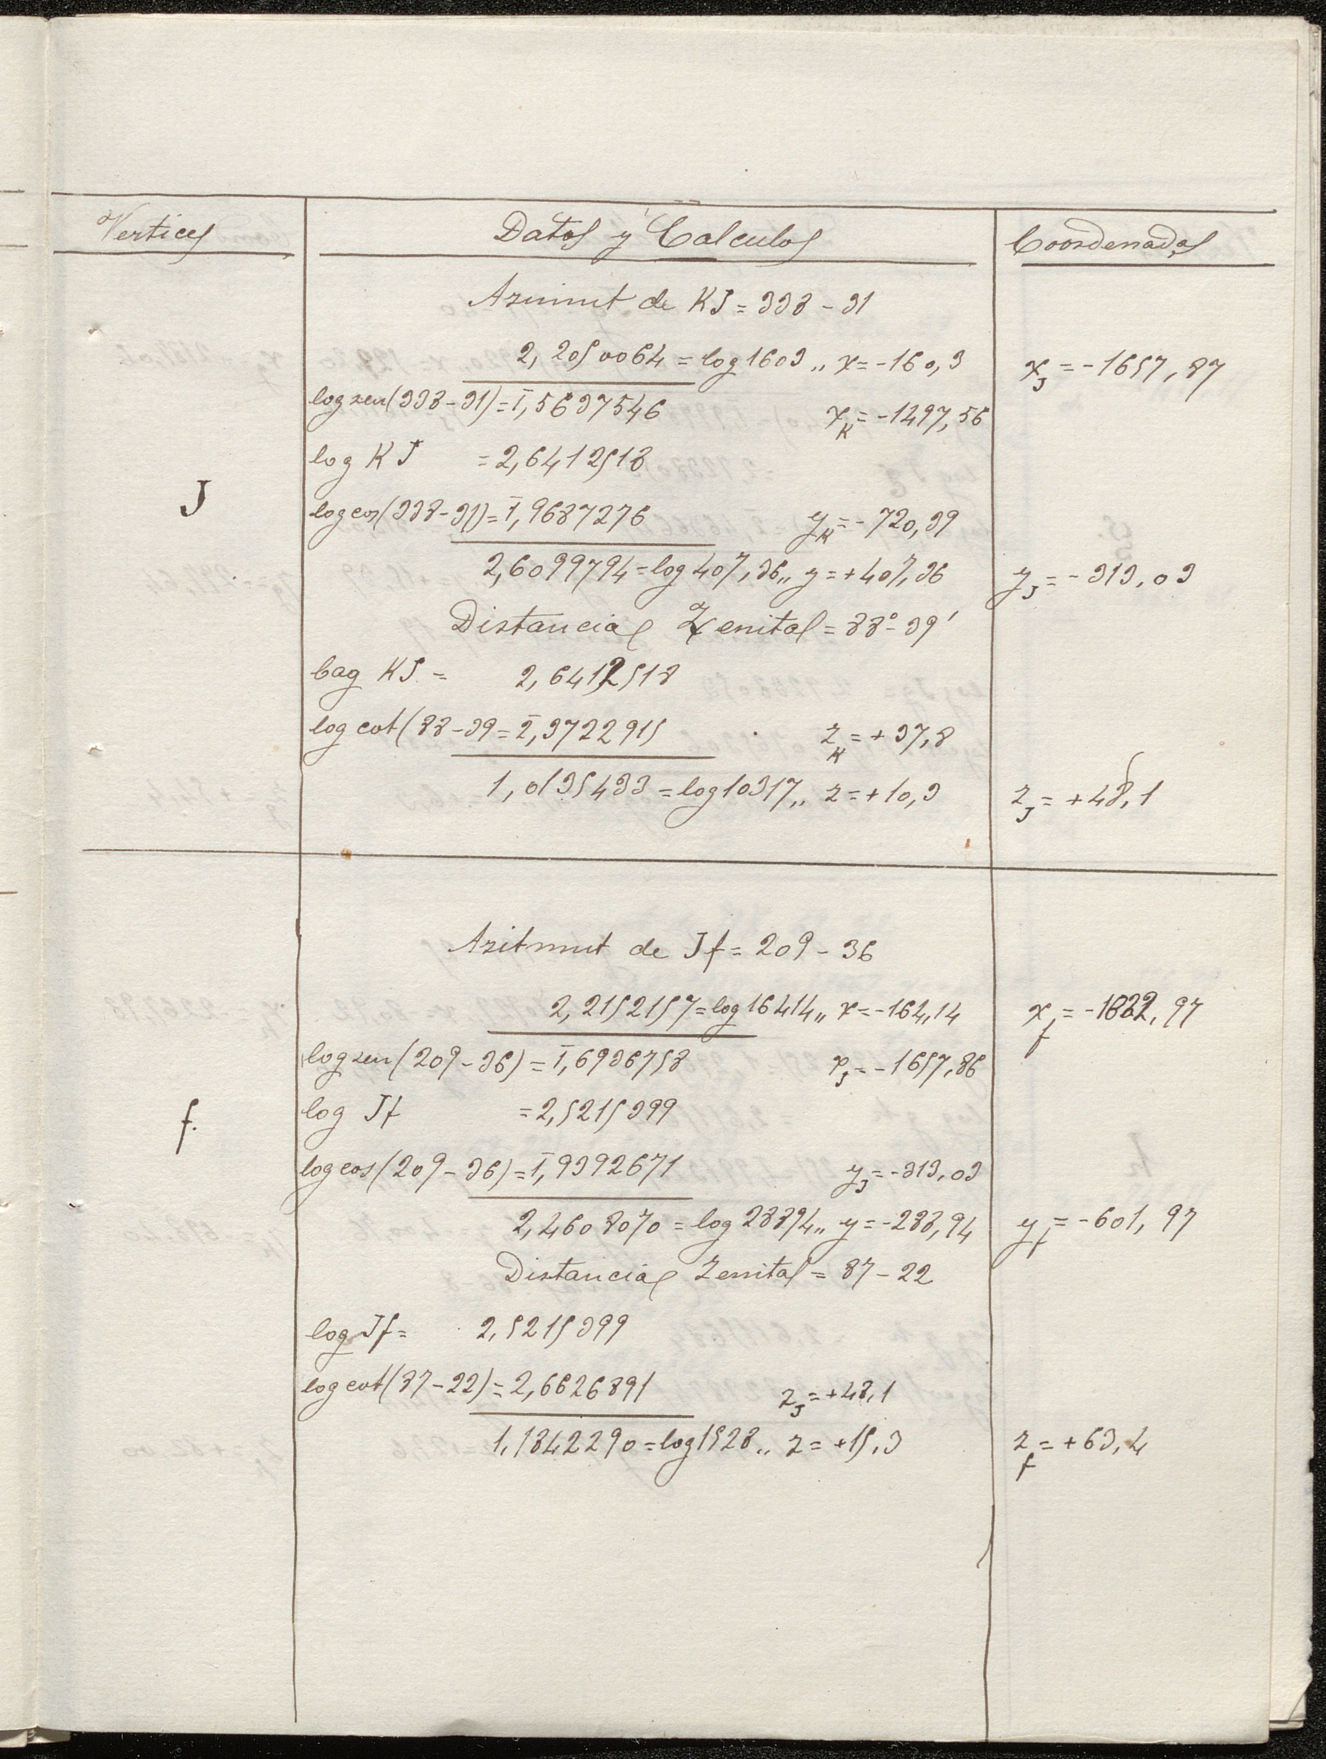 Vertices Datos y Calculos Coordenadas
Azimut de KJ = 338 - 31
2,2050064 = log 1603 ,, x = -160,3 x_J = -1657,87
log sen (338-31) = 1̄,5637546 x_K = -1497,56
log KJ = 2,6412518
J
log cos (338-31) = 1̄,9687276 y_K = -720,39
2,6099794 = log 407,36 ,, y = +407,36 y_J = -313,03
Distancias Zenital = 88° - 39'
bag KJ = 2,6412518
log cot (88-39 = 2̄,3722915 z_K = +37,8
1,0135433 = log 10317 ,, z = +10,3 z_J = +48,1
Azitmut de Jf = 209 - 36
2,2152157 = log 16414 ,, x = -164,14 x_f = -1822,97
log sen (209-36) = 1̄,6936758 x_J = -1657,86
log Jf = 2,5215399
f.
log cos (209-36) = 1̄,9392671 y_J = -313,03
2,4608070 = log 28894 ,, y = -288,94 y_f = -601,97
Distancias Zenital = 87 - 22
log Jf = 2,5215399
log cot (87-22) = 2,6626891 z_J = +48,1
1,1842290 = log 1528 ,, z = +15,3 z_f = +63,4